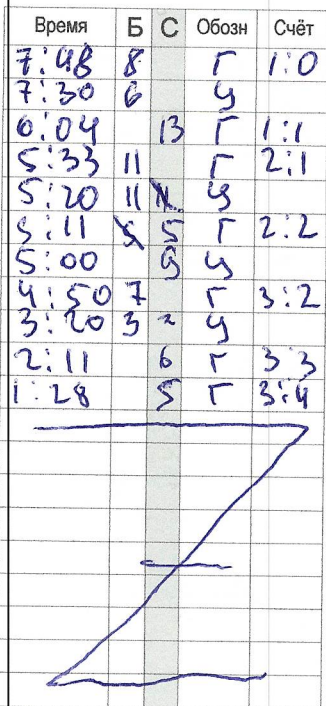 Время Б С Обозн Счёт
7:48 8 Г 1:0
7:30 6 У
6:04 13 Г 1:1
5:33 11 Г 2:1
5:20 11 У
5:11 5 5 Г 2:2
5:00 9 У
4:50 7 Г 3:2
3:20 3 2 У
2:11 6 Г 3:3
1:28 5 Г 3:4